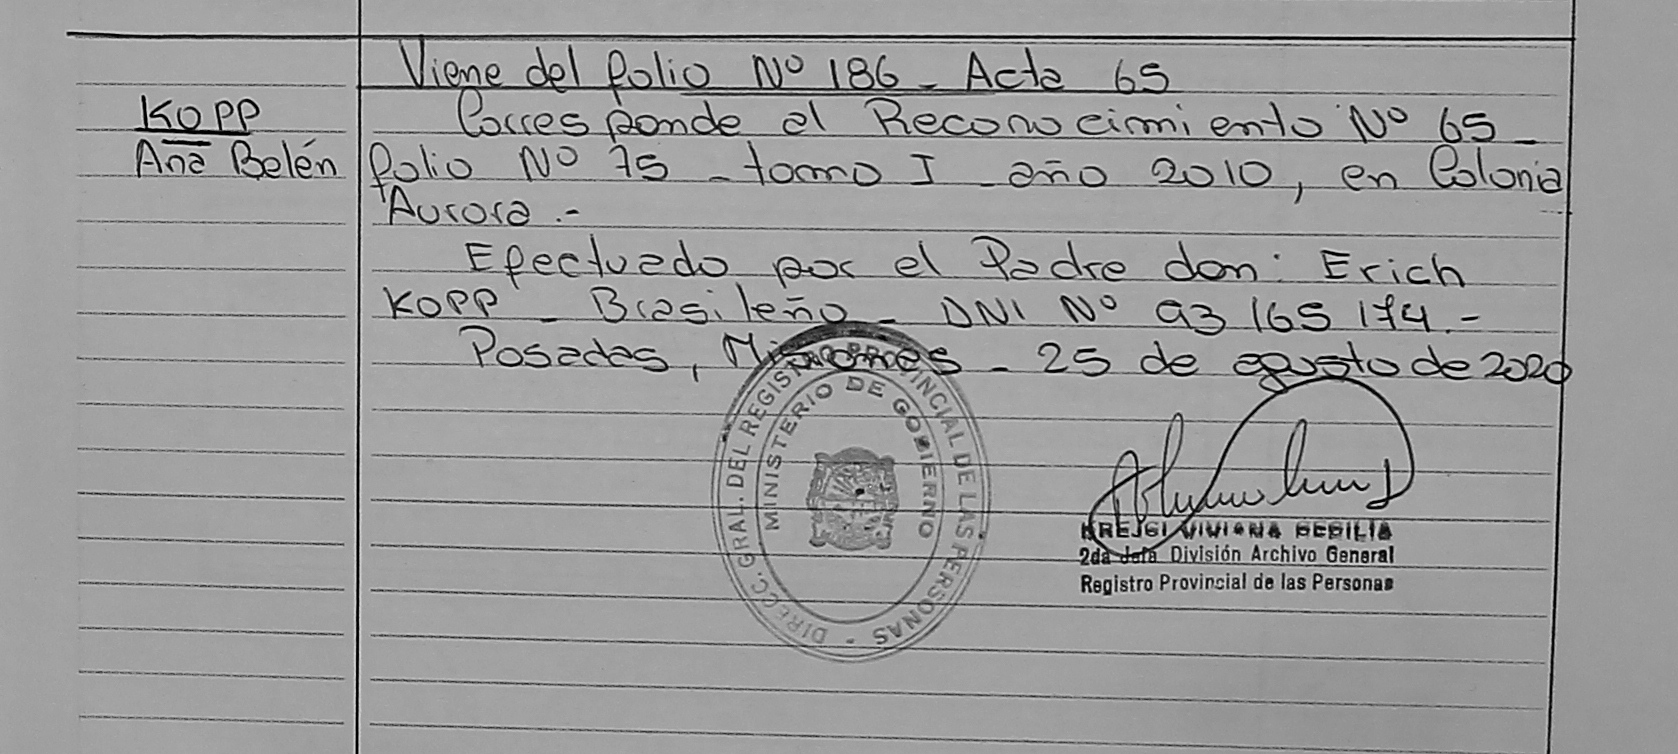 Viene del folio Nº 186 - Acta 65
KOPP
Ana Belén
Corresponde al Reconocimiento Nº 65 -
folio Nº 75 - tomo I - año 2010, en Colonia
Aurora .-
Efectuado por el Padre don: Erich
KOPP - Brasileño - DNI Nº 93 165 174.-
Posadas, Misiones - 25 de agosto de 2020
DIRECC. GRAL. DEL REGISTRO PROVINCIAL DE LAS PERSONAS -
MINISTERIO DE GOBIERNO
KREJCI VIVIANA CECILIA
2da Jefa División Archivo General
Registro Provincial de las Personas